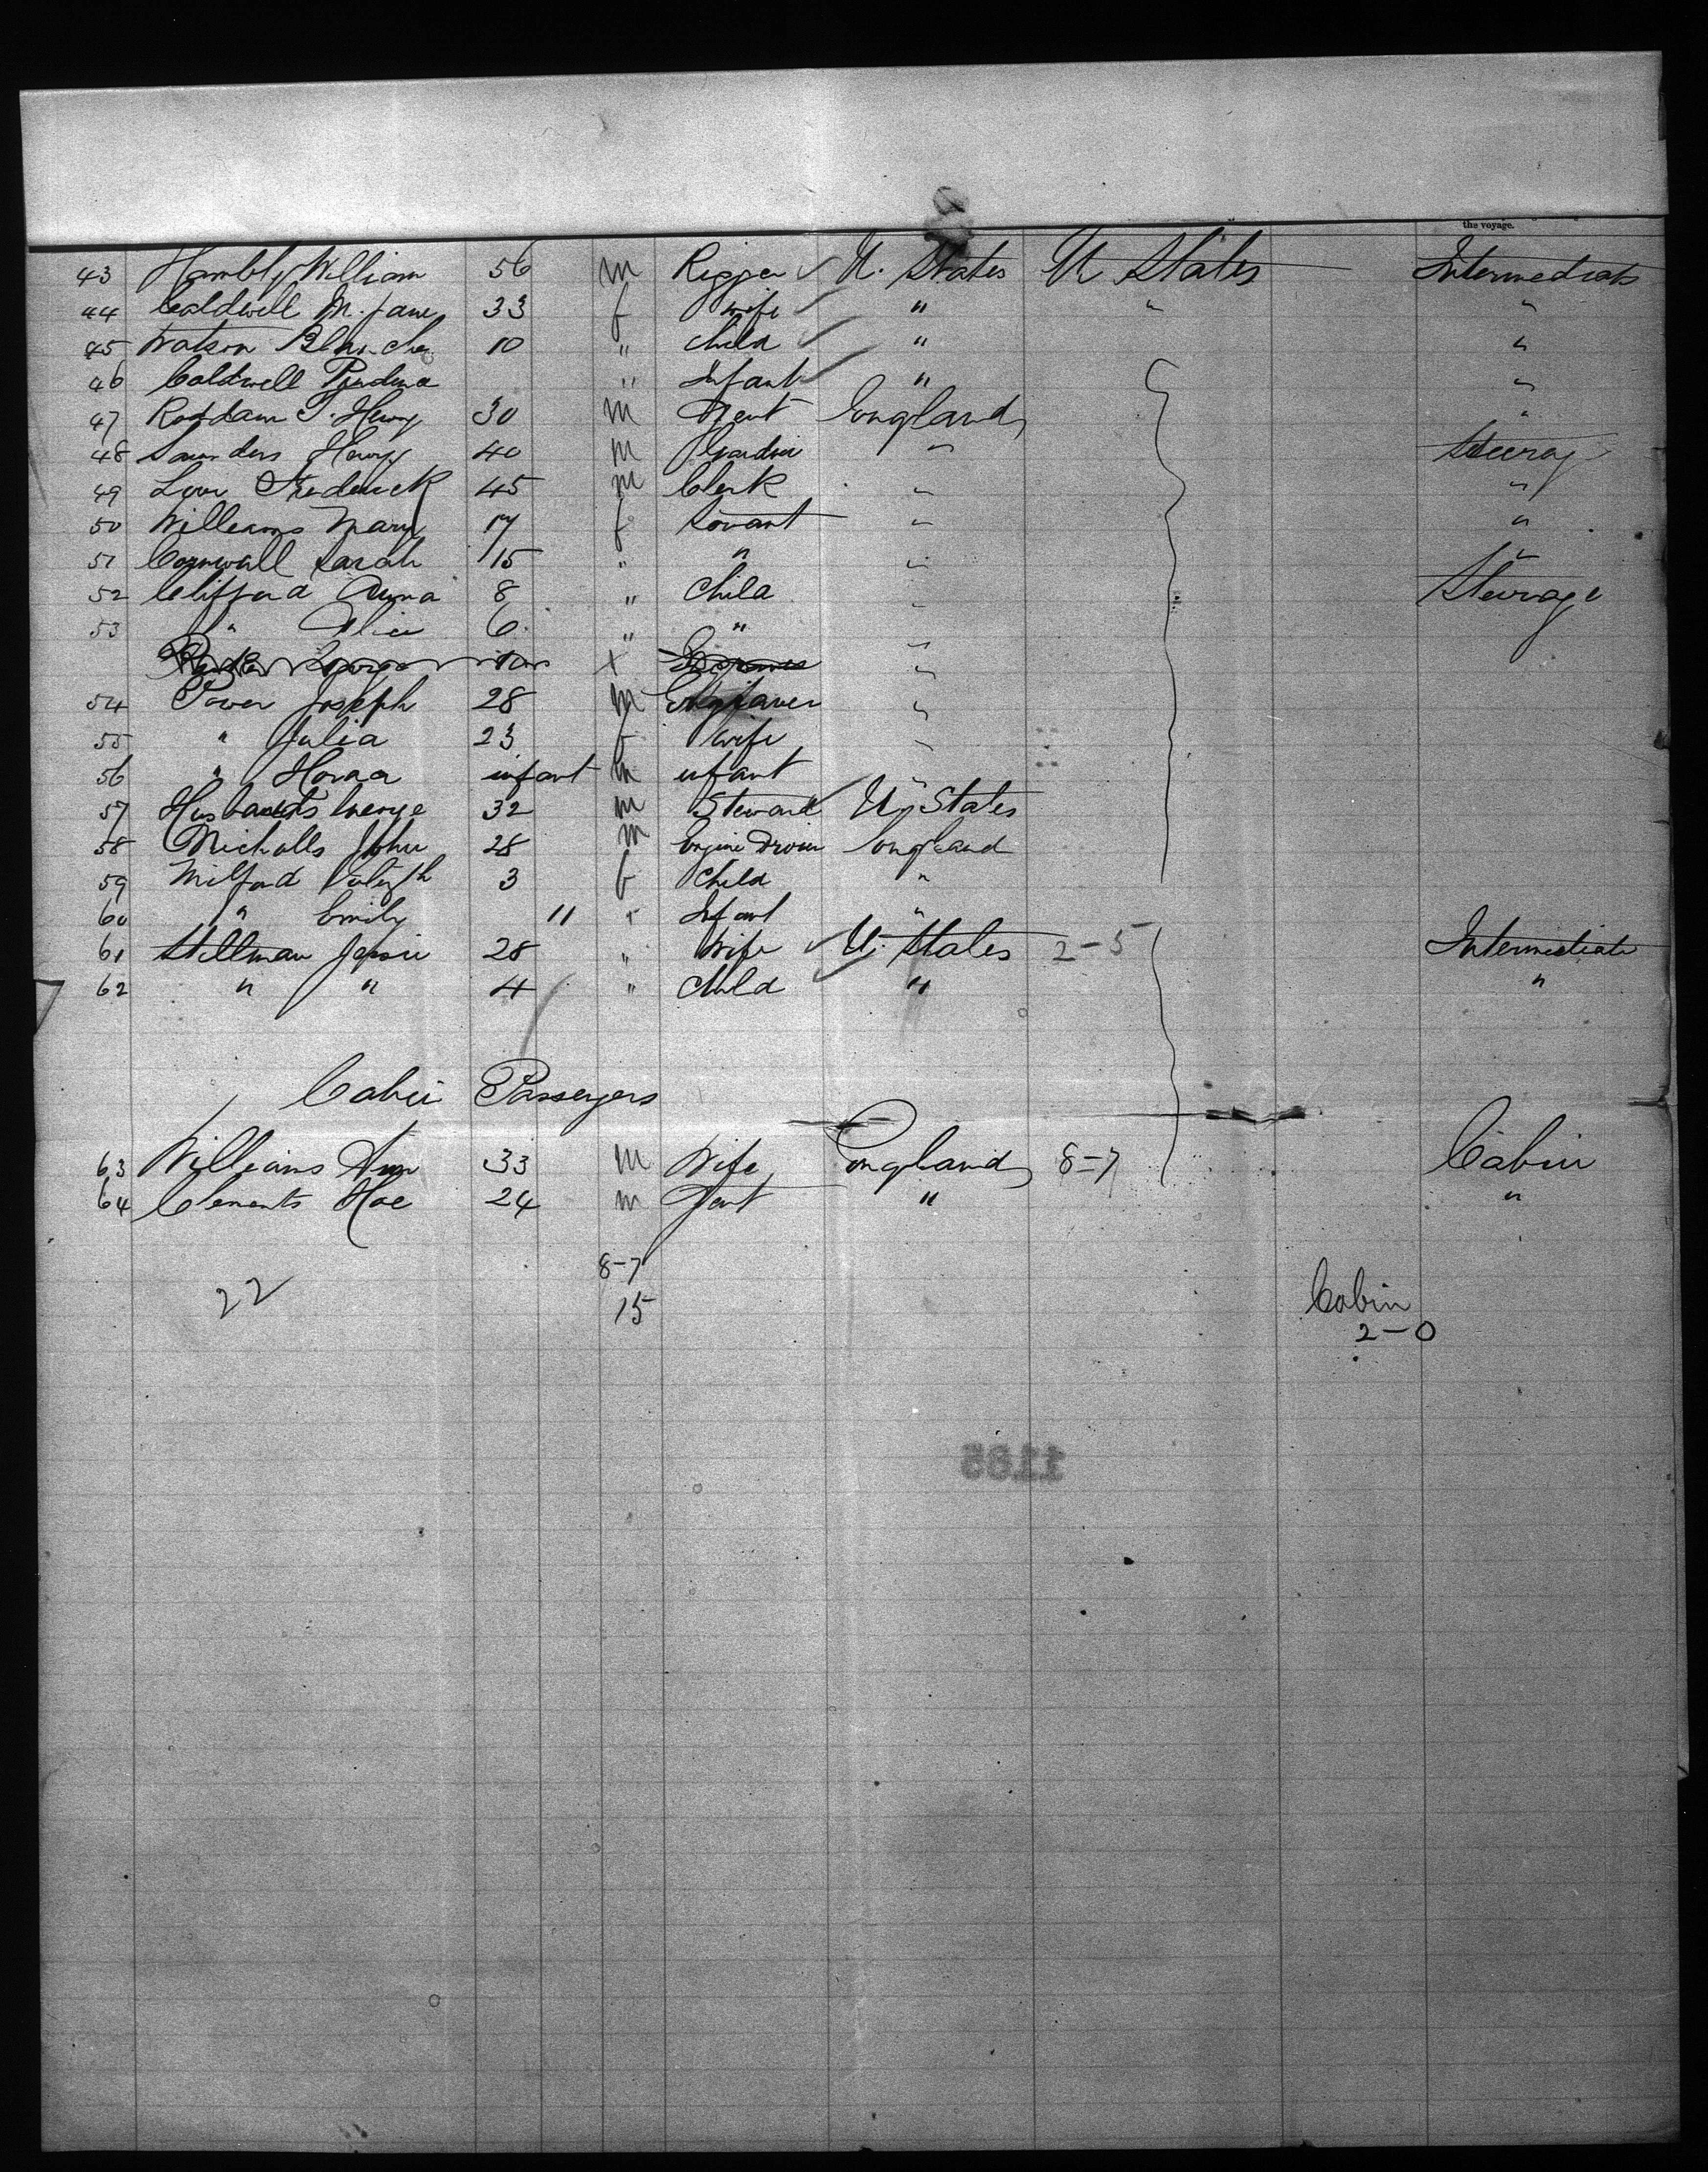 the voyage.
43 Hambly William 56 m Rigger ✓ U. States U. States Intermediate
44 Caldwell M. Jane 33 f Wife ✓ " " "
45 Watson Blanche 10 " Child ✓ " "
46 Caldwell " Infant ✓ " "
47 Henry 30 m England "
48 Saunders Henry 40 m " Steerage
49 Frederick 45 m Clerk " "
50 Williams Mary 17 f Servant " "
51 Cornwall Sarah 15 " " " "
52 Clifford Anna 8 " Child " Steerage
53 " Alice 6 " " "
George x "
54 Power Joseph 28 m "
55 " Julia 23 f Wife "
56 " infant m infant "
57 Husbands George 32 m Steward ✓ U. States
58 Nicholls John 28 m Engine Driver England
59 Milford 3 f Child "
60 " Emily 11 " Infant "
61 Stillman Jessie 28 " Wife ✓ U. States 2-5 Intermediate
62 " " 4 " Child ✓ " "
Cabin Passengers
63 Williams 33 m Wife England 8-7 Cabin
64 Clements 24 m " "
8-7
22 15 Cabin
2-0
1185